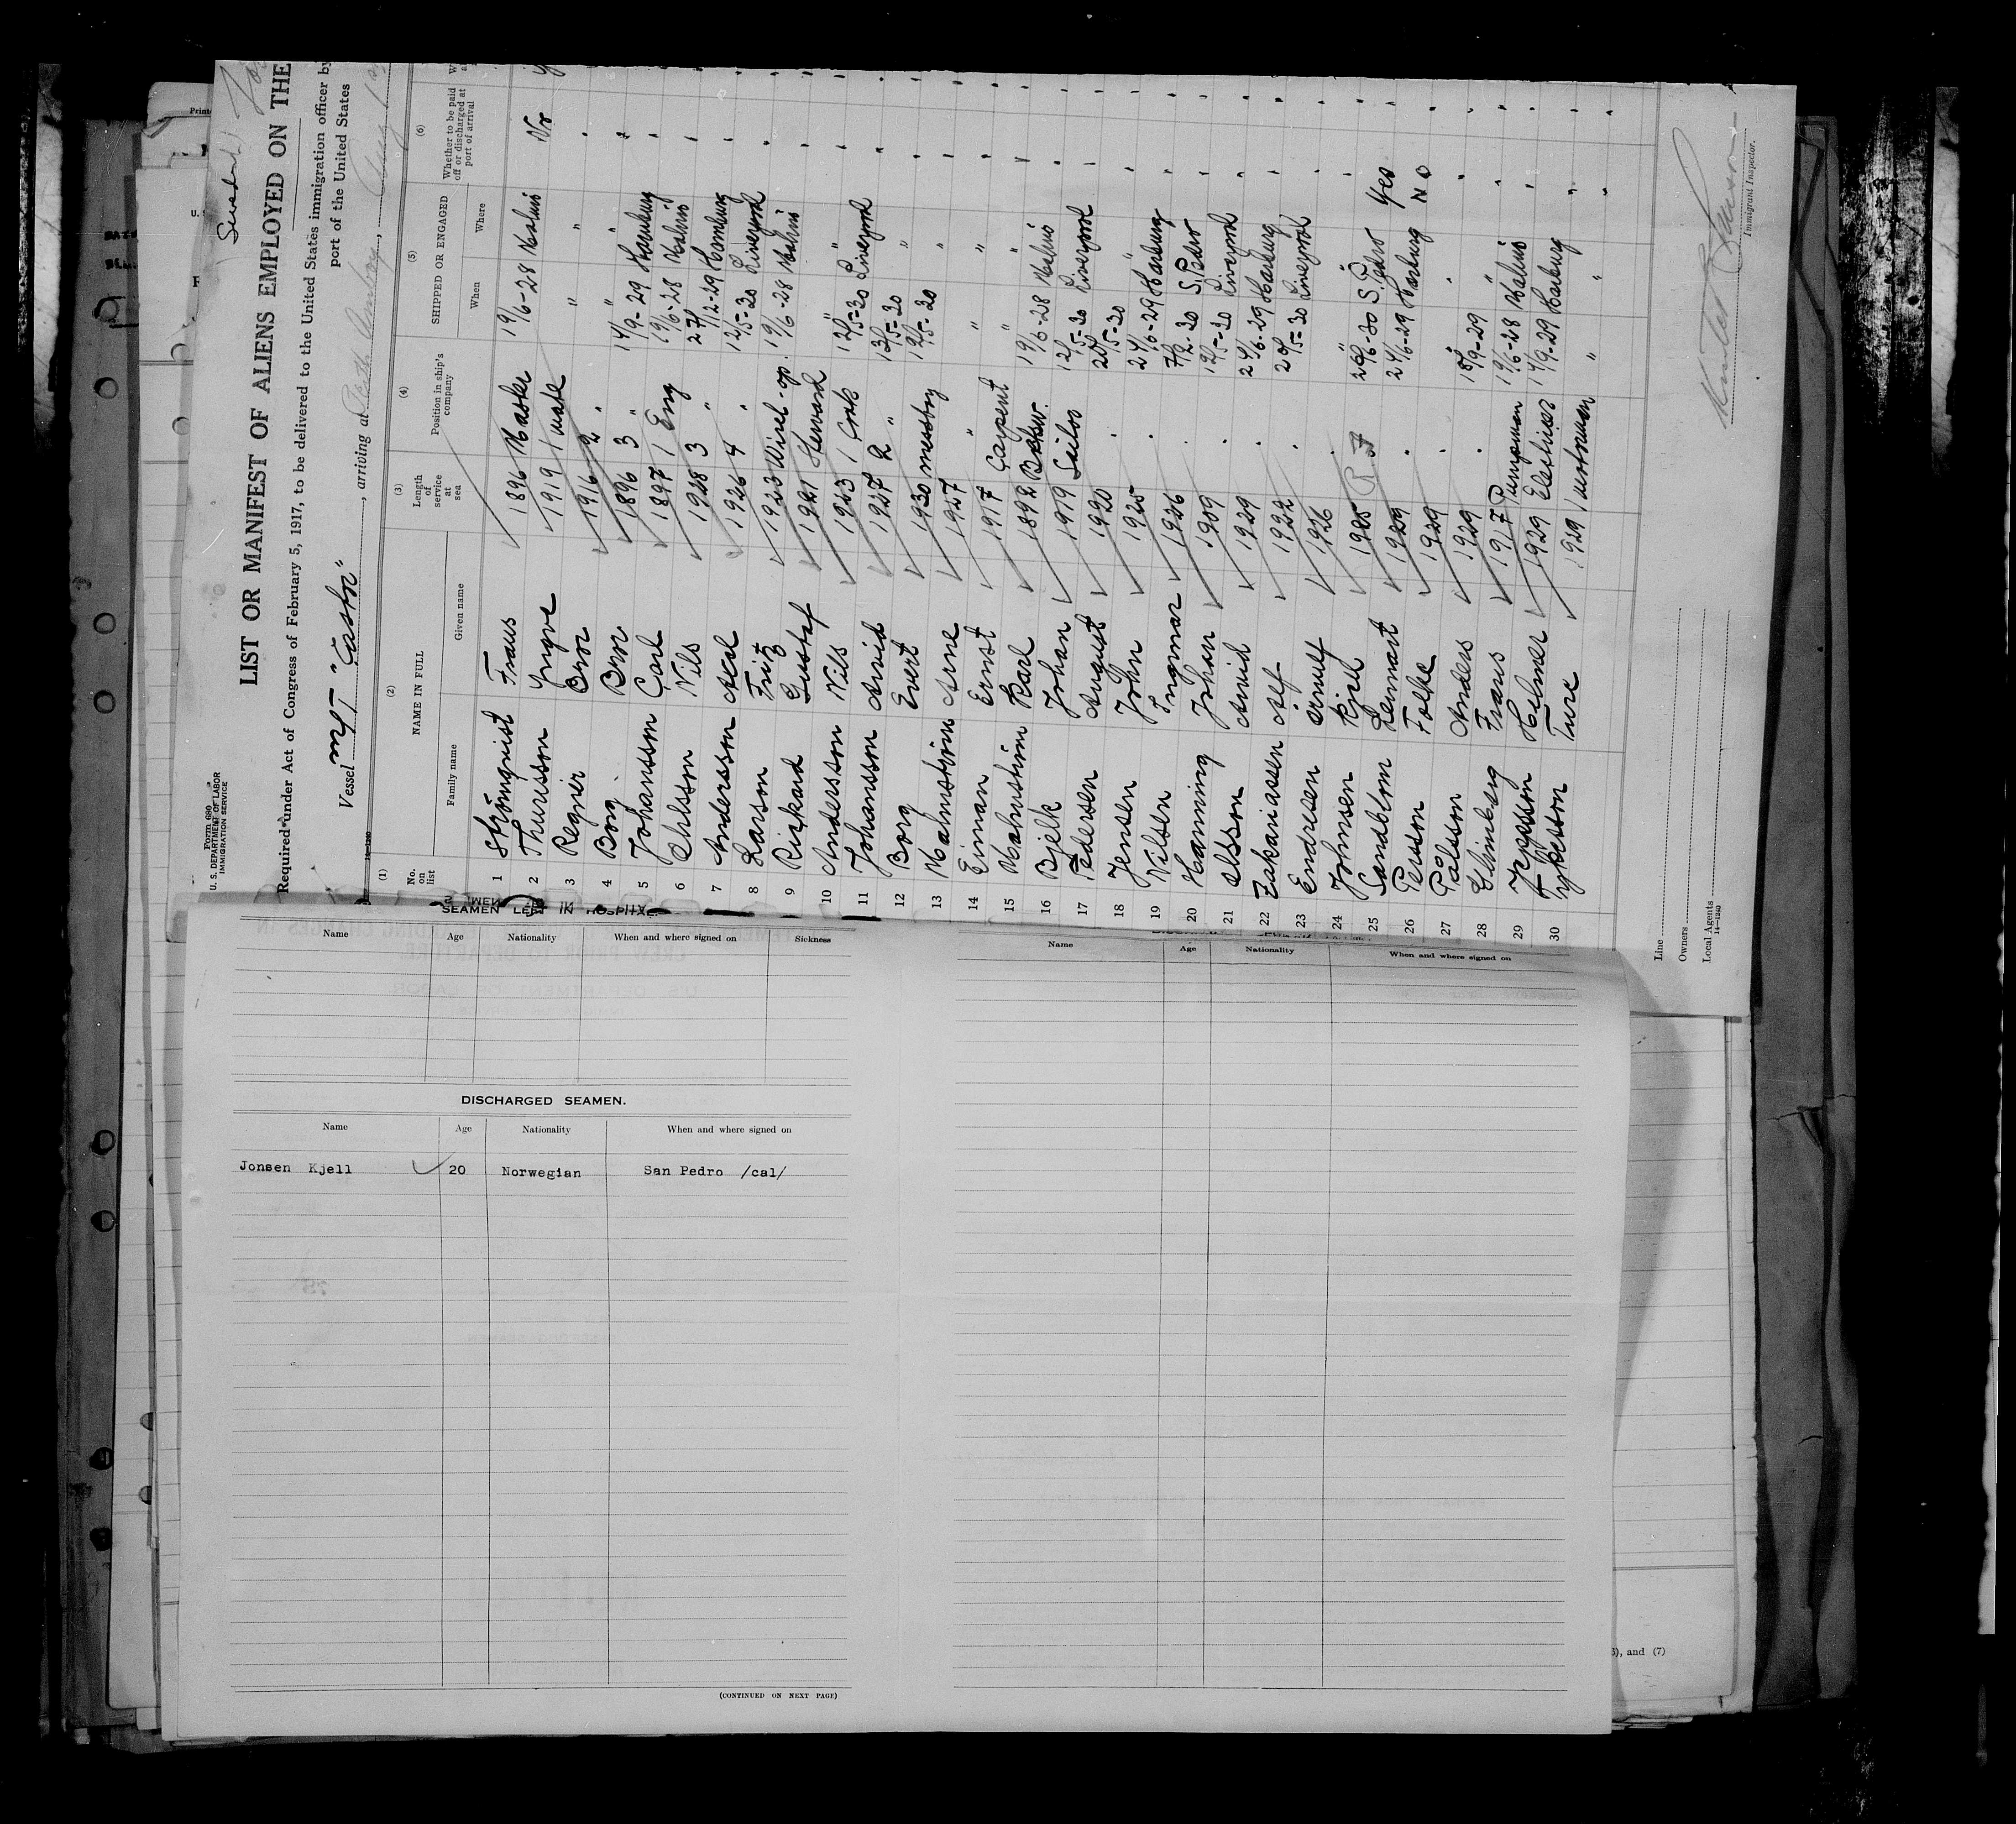 Form 680
U. S. DEPARTMENT OF LABOR
IMMIGRATION SERVICE
LIST OR MANIFEST OF ALIENS EMPLOYED ON THE
Required under Act of Congress of February 5, 1917, to be delivered to the United States immigration officer by
port of the United States
Vessel M/T "Castor", arriving at Perth Amboy
(1) (2) (3) (4) (5) (6)
No. on list
NAME IN FULL
Family name Given name
Length of service at sea
Position in ship's company
SHIPPED OR ENGAGED
When Where
Whether to be paid off or discharged at port of arrival
1 Strömqvist Frans 1896 Master 19/6-28 Malmö No
2 Thuresson Yngve 1919 1 mate " "
3 Regnér Bror 1916 2 " " "
4 Borg Bror 1896 3 " 14/9-29 Hamburg
5 Johansson Carl 1897 1 Eng 19/6-28 Malmö
6 Nils 1928 3 " 27/12-29 Hamburg
7 Andersson Axel 1926 4 " 12/5-30 Liverpool
8 Larson Fritz 1923 Wirel-op. 19/6-28 Malmö
9 Rickard Gustaf 1921 Steward " "
10 Andersson Nils 1923 1 Cook 12/5-30 Liverpool
11 Johansson Arvid 1927 2 " 13/5-30 "
12 Borg Evert 1930 messboy 12/5-30 "
13 Malmström Arne 1927 " " "
14 Einan Ernst 1917 Carpent " "
15 Malmström Karl 1892 Botsw. 19/6-28 Malmö
16 Bjelk Johan 1919 Sailor 12/5-30 Liverpool
17 Pedersen August 1920 . 20/5-30 "
18 Jensen John 1925 . 24/6-29 Harburg
19 Nilsen Ingmar 1926 . 7/2-30 S. Pedro
20 Hanning Johan 1909 . 12/5-30 Liverpool
21 Olsson Arvid 1929 . 24/6-29 Harburg
22 Zakariassen Alf 1922 . 20/5-30 Liverpool
23 Endresen Arnulf 1926 . " "
24 Johnsen Kjell 1925 . S. Pedro Yes
25 Sandblom Lennart 1929 . 24/6-29 Harburg No
26 Person Folke 1929 . " "
27 Pålsson Anders 1929 . 18/9-29 "
28 Glimberg Frans 1917 Pumpman 19/6-28 Malmö
29 Jeppsson Helmer 1929 Electriker 14/9-29 Harburg
30 Ture 1929 " "
Line
Owners
Local Agents
14—1240
Immigrant Inspector.
SEAMEN LEFT IN HOSPITAL
Name Age Nationality When and where signed on Sickness
DISCHARGED SEAMEN.
Name Age Nationality When and where signed on
Jonsen Kjell 20 Norwegian San Pedro /cal/
(CONTINUED ON NEXT PAGE)
Name Age Nationality When and where signed on
), and (7)